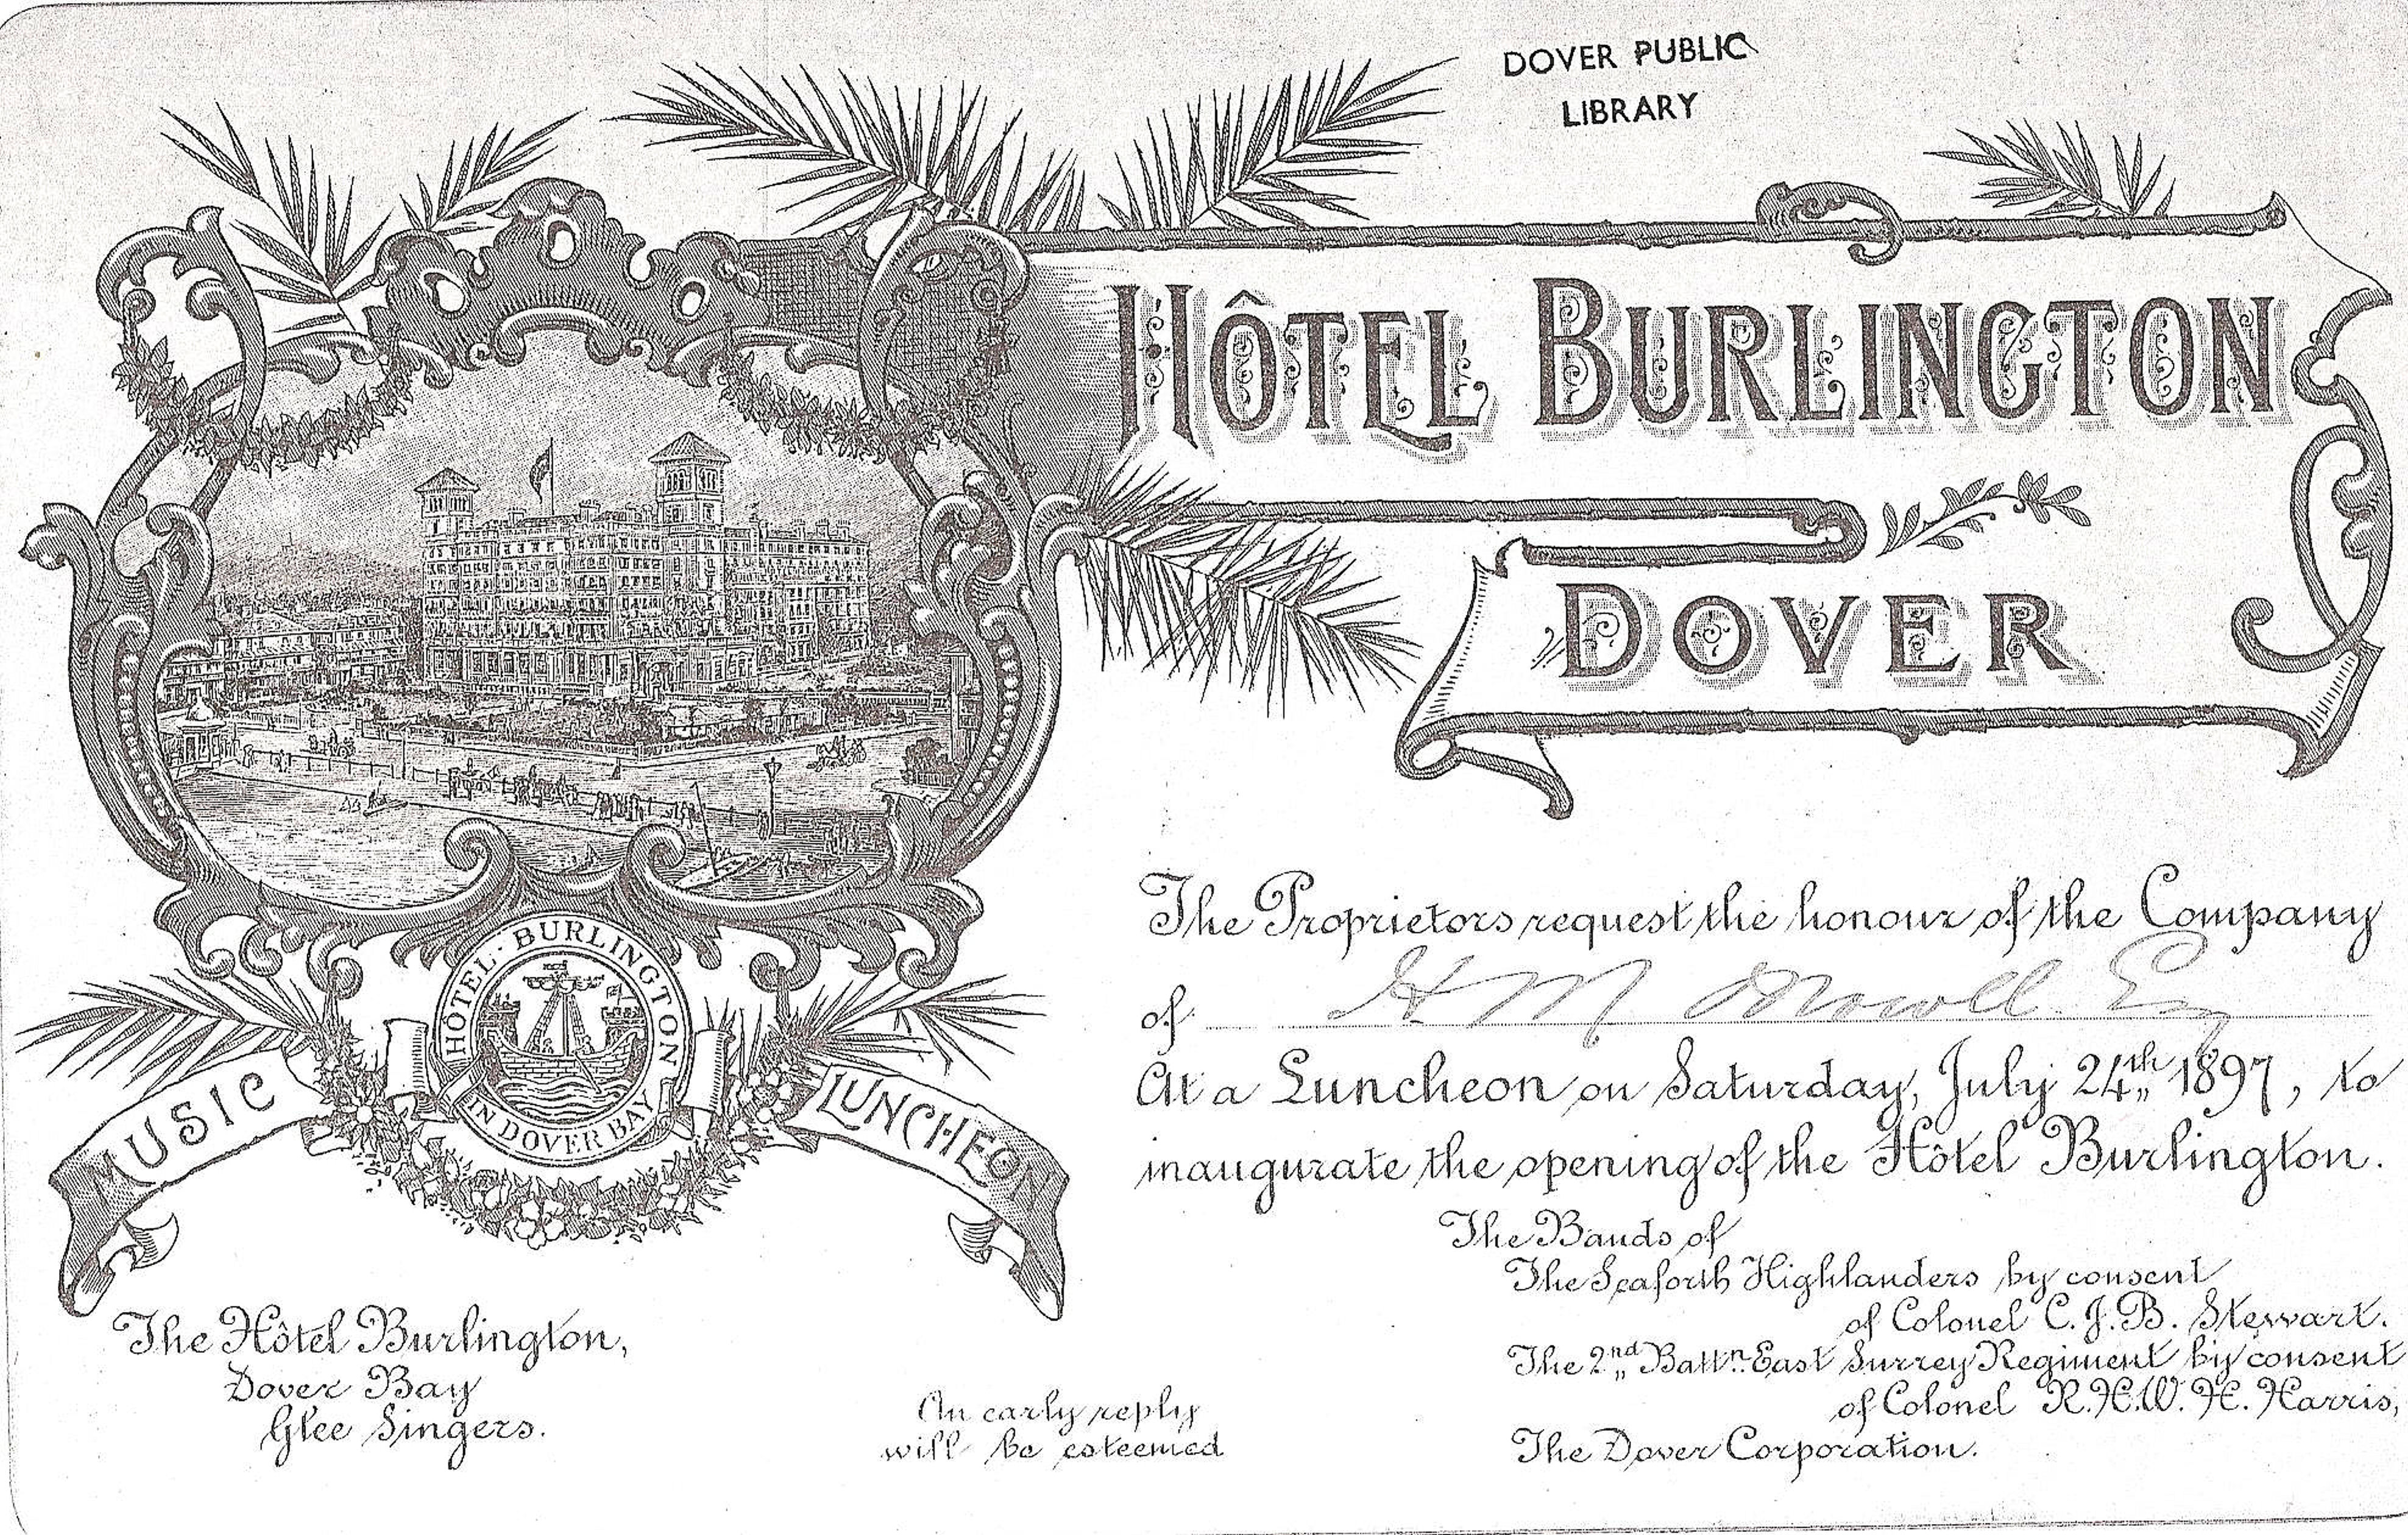 DOVER PUBLIC
LIBRARY
HÔTEL BURLINGTON
DOVER
HOTEL · BURLINGTON
IN DOVER BAY
MUSIC
LUNCHEON
The Proprietors request the honour of the Company
of H M Mowll Esq
At a Luncheon on Saturday, July 24th 1897, to
inaugurate the opening of the Hôtel Burlington.
The Bands of
The Seaforth Highlanders by consent
of Colonel C. J. B. Stewart.
The 2nd Battn. East Surrey Regiment by consent
of Colonel R.H.W. H. Harris,
The Dover Corporation.
The Hôtel Burlington,
Dover Bay
Glee Singers.
An early reply
will be esteemed